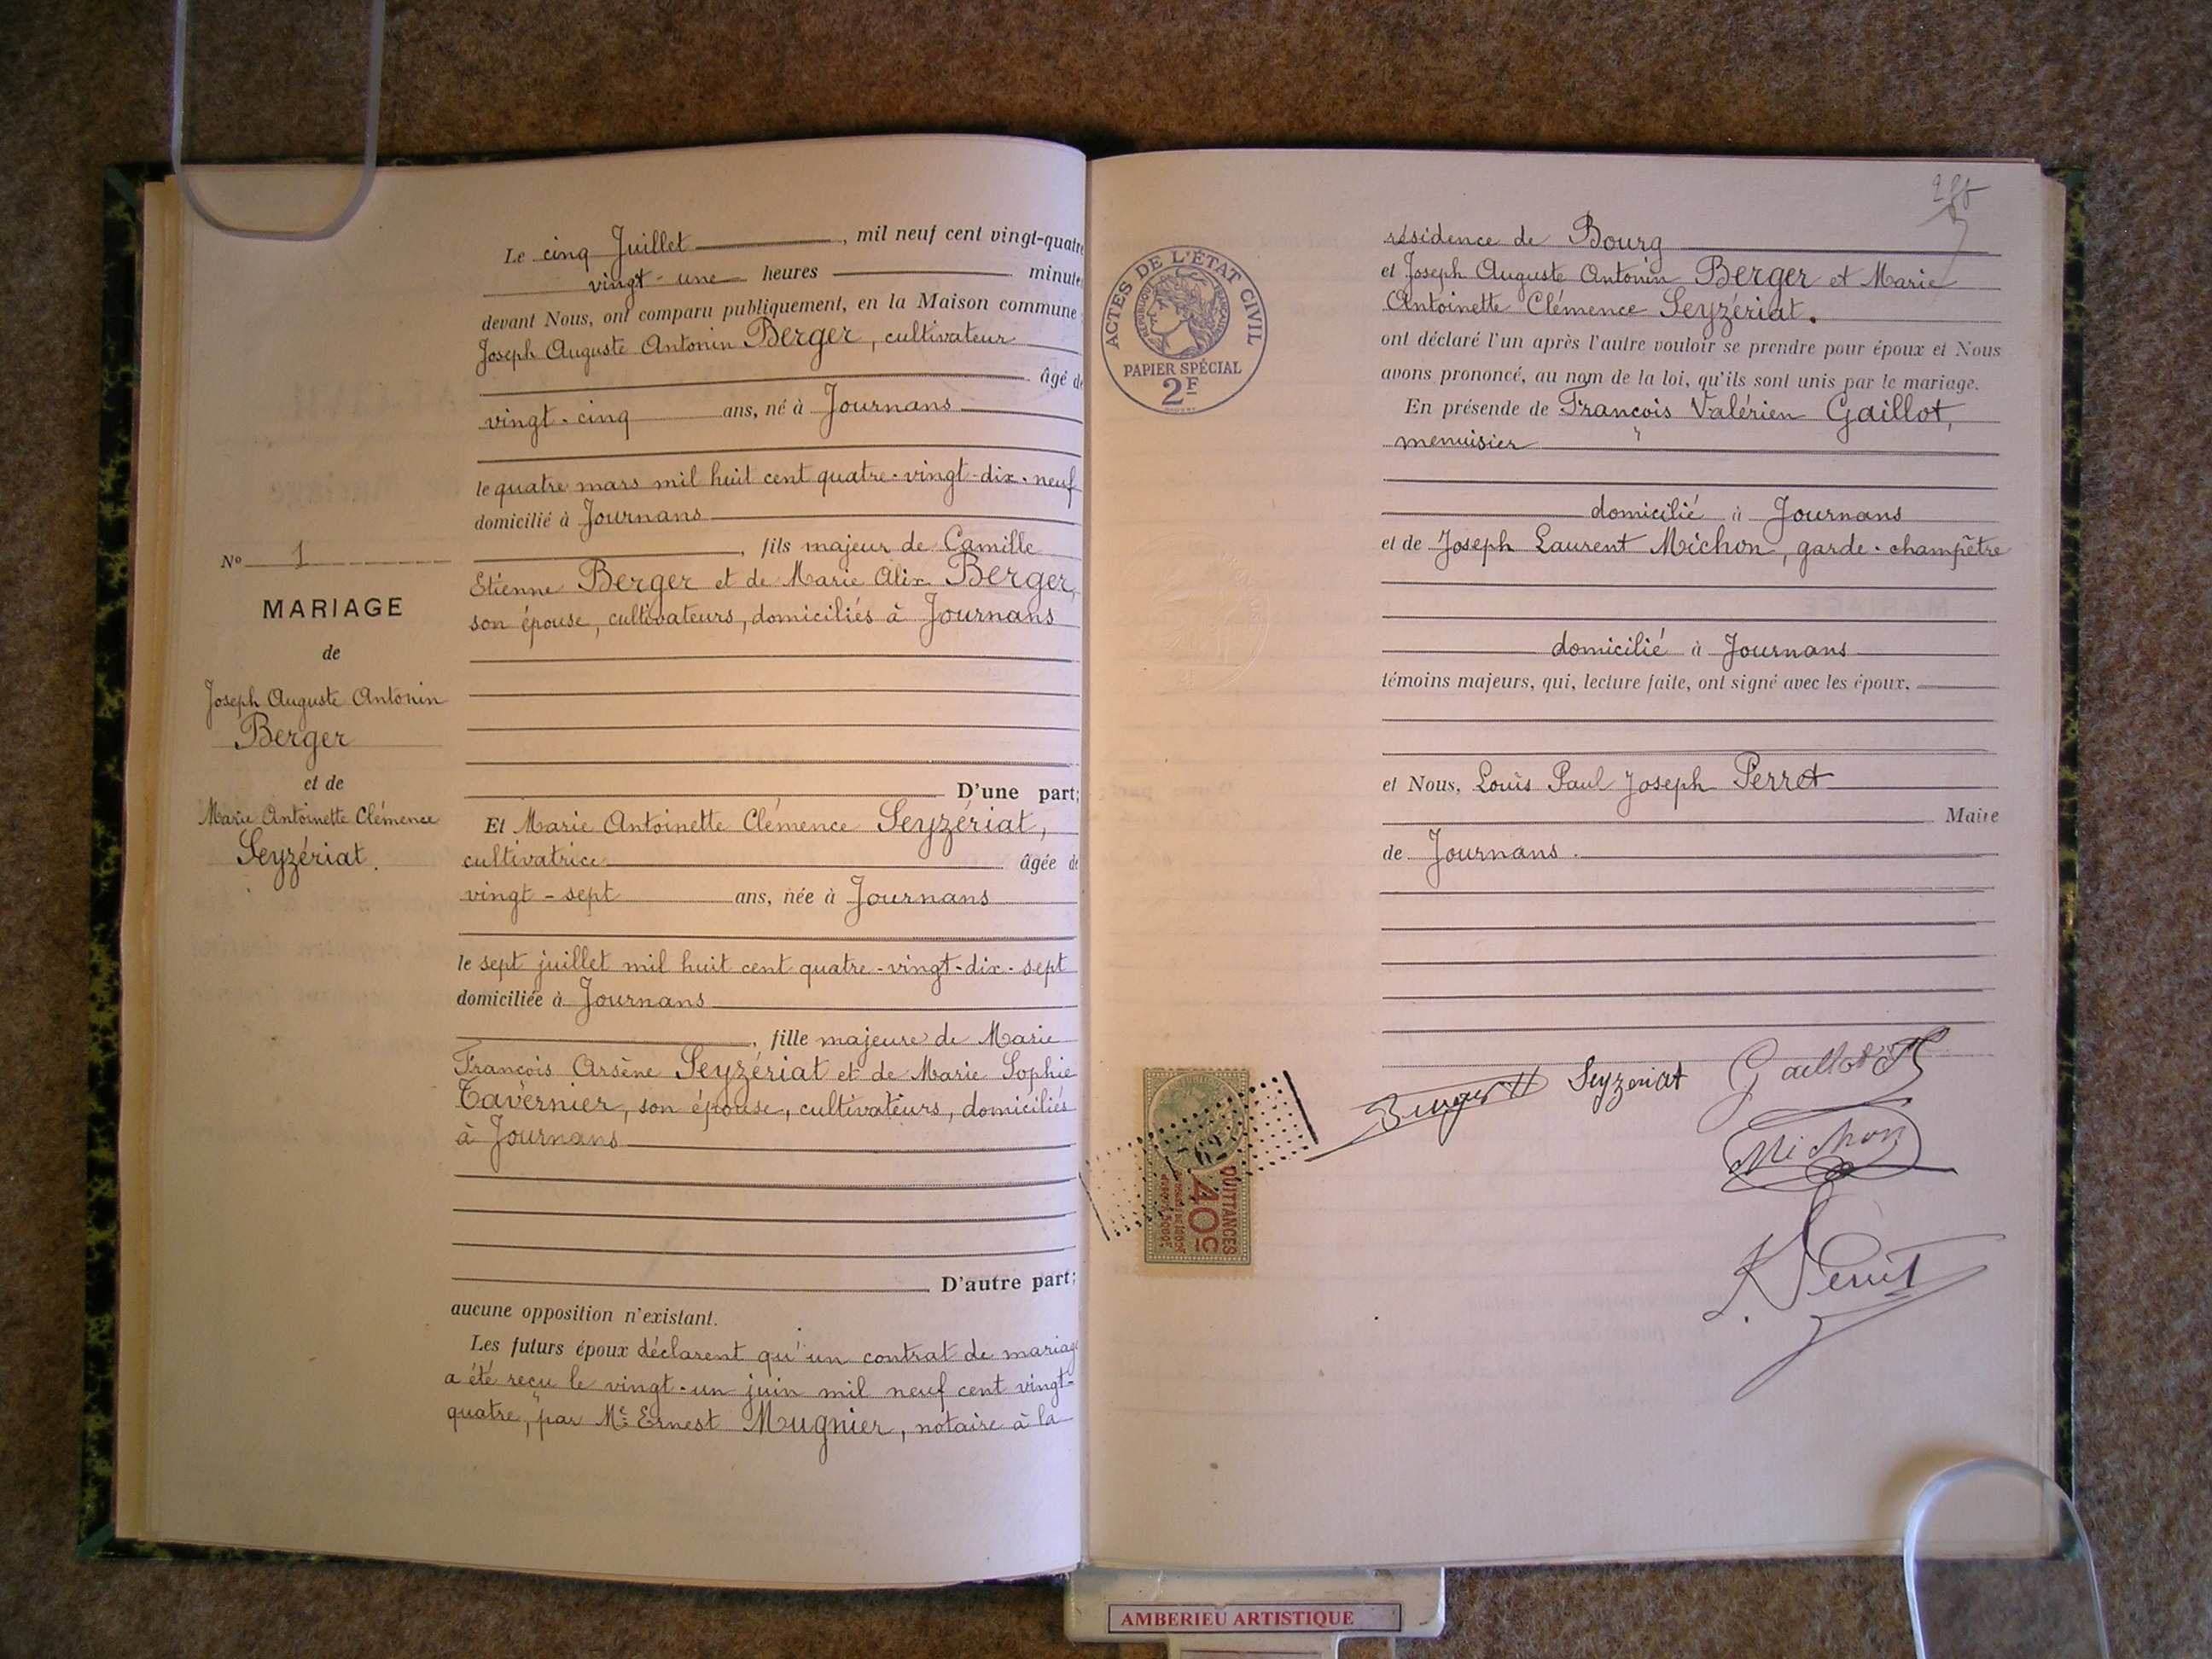 Le cinq Juillet, mil neuf cent vingt-quatre
vingt-une heures minute
devant Nous, ont comparu publiquement, en la Maison commune :
Joseph Auguste Antonin Berger, cultivateur
âgé de
vingt-cinq ans, né à Journans
le quatre mars mil huit cent quatre-vingt-dix-neuf
domicilié à Journans
, fils majeur de Camille
Etienne Berger et de Marie Alix Berger,
son épouse, cultivateurs, domiciliés à Journans
No 1
MARIAGE
de
Joseph Auguste Antonin
Berger
et de
Marie Antoinette Clémence
Seyzériat.
D'une part;
Et Marie Antoinette Clémence Seyzériat,
cultivatrice âgée de
vingt-sept ans, née à Journans
le sept juillet mil huit cent quatre-vingt-dix-sept
domiciliée à Journans
, fille majeure de Marie
François Arsène Seyzériat et de Marie Sophie
Tavernier, son épouse, cultivateurs, domiciliés
à Journans
D'autre part;
aucune opposition n'existant.
Les futurs époux déclarent qu'un contrat de mariage
a été reçu le vingt-un juin mil neuf cent vingt-
quatre, par Me Ernest Mugnier, notaire à la
ACTES DE L'ÉTAT CIVIL
RÉPUBLIQUE FRANÇAISE
PAPIER SPÉCIAL
2F
résidence de Bourg
et Joseph Auguste Antonin Berger et Marie
Antoinette Clémence Seyzériat.
ont déclaré l'un après l'autre vouloir se prendre pour époux et Nous
avons prononcé, au nom de la loi, qu'ils sont unis par le mariage.
En présende de François Valérien Gaillot,
menuisier
domicilié à Journans
et de Joseph Laurent Michon, garde-champêtre
domicilié à Journans
témoins majeurs, qui, lecture faite, ont signé avec les époux.
et Nous, Louis Paul Joseph Perret
Maire
de Journans.
Berger Seyzeriat Gaillot
Michon
Perret
QUITTANCES
40c
AMBERIEU ARTISTIQUE